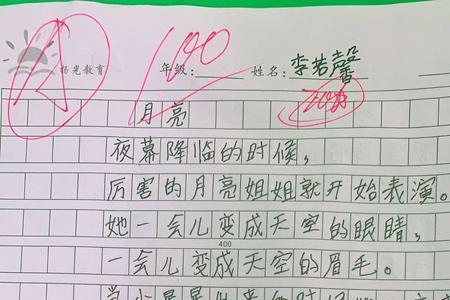 A 100
杨光教育 年级: 姓名: 李若馨
月亮
夜幕降临的时候,
厉害的月亮姐姐就开始表演。
她一会儿变成天空的眼睛,
400
一会儿变成天空的眉毛。